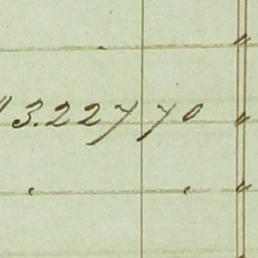 " 3.227 70